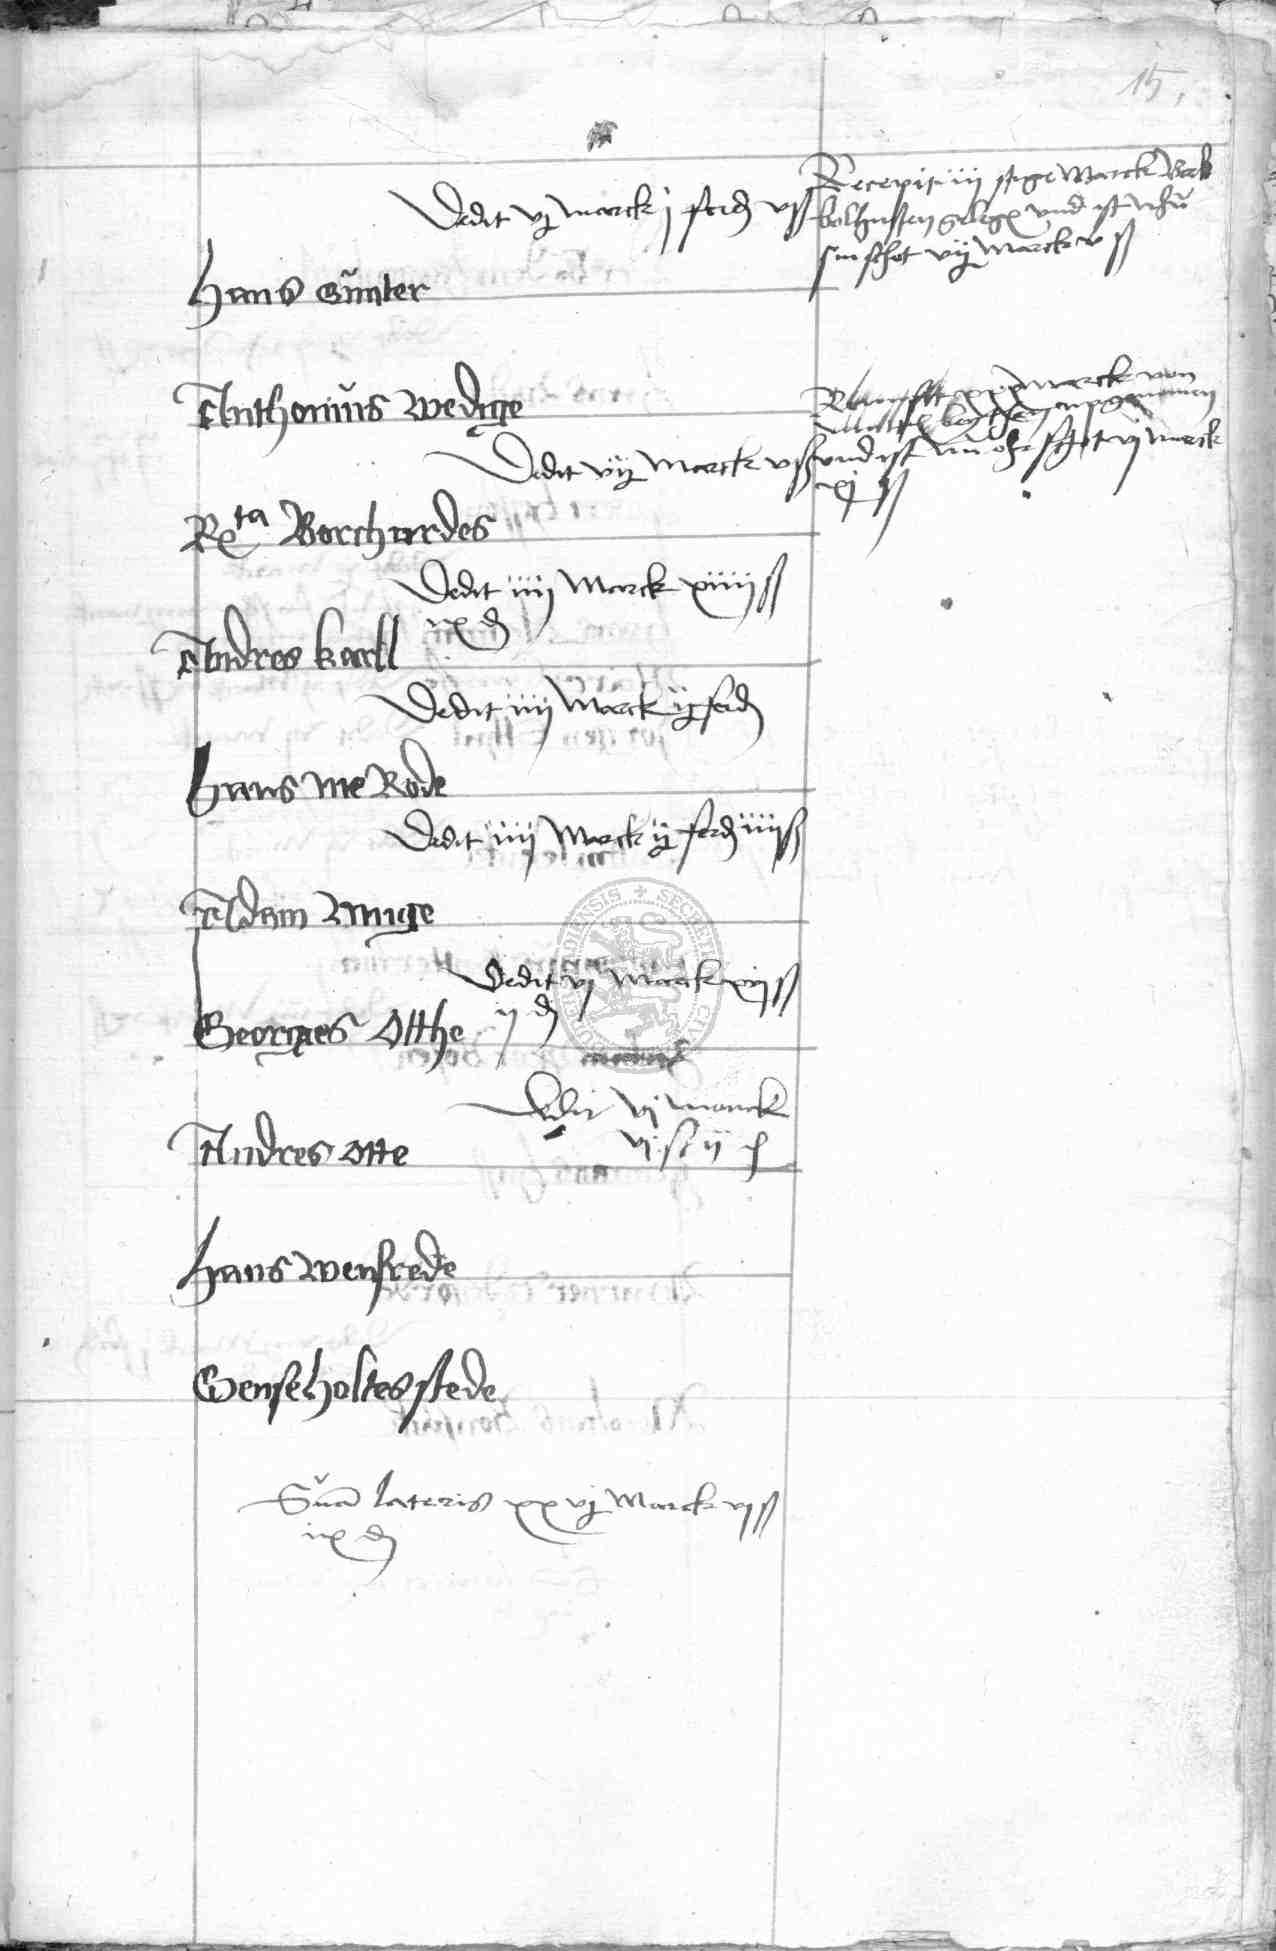 15
Dedit vj marck j ferd vß
Recepit iiij stige Marck
und ist
sin schot vij Marck v ß
Hans Günter
Anthonius Wedige
marck von
Dedit vij Marck vß
und ist nu ohr schot vj marck
xj ß
Rta Borchardes
Dedit iiij Marck xiiij ß
ix d
Andres karll
Dedit iiij Marck ij ferd
Hans me Rode
Dedit iiij Marck ij ferd iiij ß
Adam
Dedit vj Marck xij ß
ij d
Georges Otthe
Dedit vj marck
vj ß ij d
Andres otte
Hans wenfrede
Genseholtes stede
Sua lateris xxvj Marck vj ß
ix d